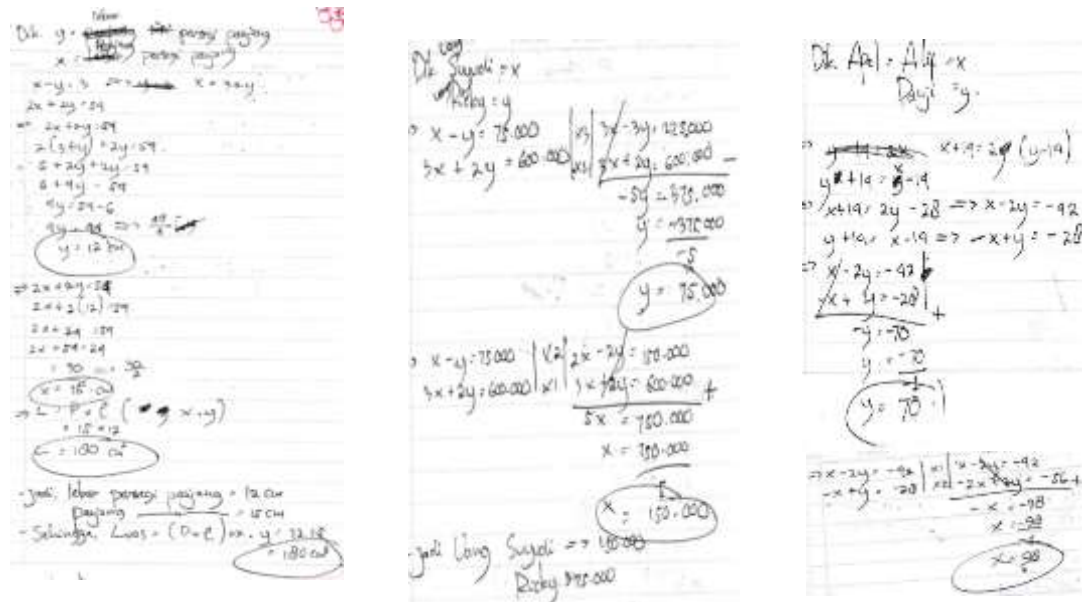 lebar
Dik. y = persegi panjang
x = persegi panjang
x - y = 3 => x = 3 + y
2x + 2y = 54
=> 2x + 2y = 54
2(3+y) + 2y = 54
= 6 + 2y + 2y = 54
6 + 4y = 54
4y = 54 - 6
4y = 48 =>
y = 12 cm
=> 2x + 2y = 54
2x + 2(12) = 54
2x + 24 = 54
2x = 54 - 24
= 30 => 30/2
x = 15 cm
=> L = P x l ( x . y)
= 15 x 12
L = 180 cm²
- Jadi, lebar persegi panjang = 12 cm
panjang = 15 cm
- Sehingga, Luas = (P x l) => x . y = 12 . 15
= 180 cm²
uang
Dik. Suyadi = x
Rizky = y
=> x - y = 75.000 | x3 | 3x - 3y = 225.000
3x + 2y = 600.000 | x1 | 3x + 2y = 600.000 -
-5y = 375.000
y = -375.000
-5
y = 75.000
=> x - y = 75.000 | x2 | 2x - 2y = 150.000
3x + 2y = 600.000 | x1 | 3x + 2y = 600.000 +
5x = 750.000
x = 750.000
5
x = 150.000
- Jadi Uang Suyadi => 150.000
Rizky 75.000
Dik. Apel = Alif = x
= y.
=> x + 14 = 2 (y-14)
y + 14 = x - 14
=> x + 14 = 2y - 28 => x - 2y = -42
y + 14 = x - 14 => -x + y = -28
=> x - 2y = -42
-x + y = -28 +
-y = -70
y = -70
-1
y = 70
=> x - 2y = -42 | x1 | x - 2y = -42
-x + y = -28 | x2 | -2x + 2y = -56 +
-x = -98
x = -98
-1
x = 98